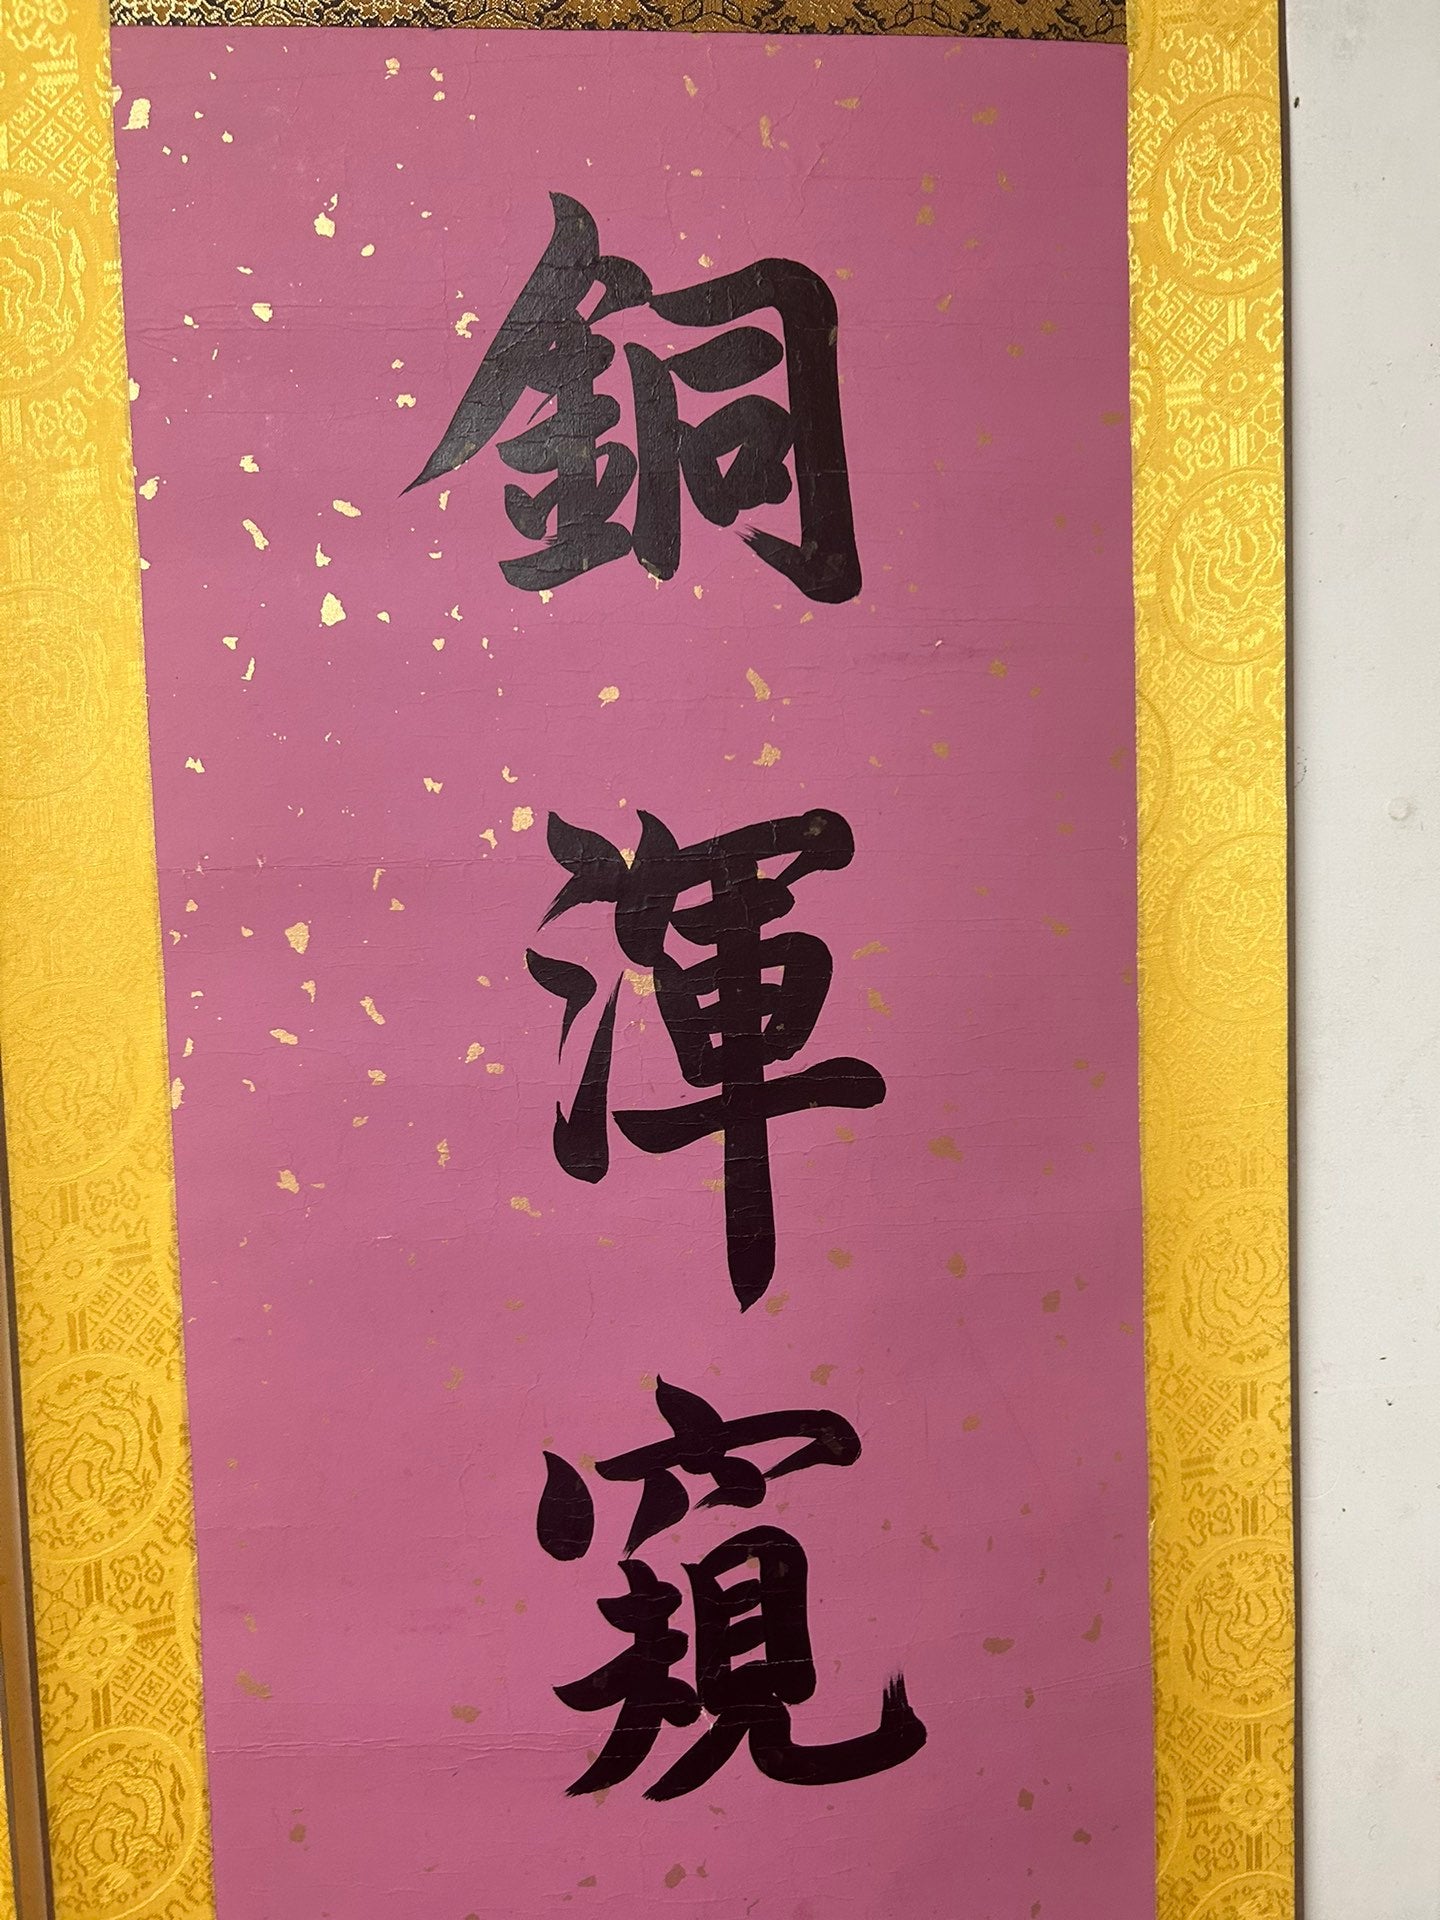 銅渾窺